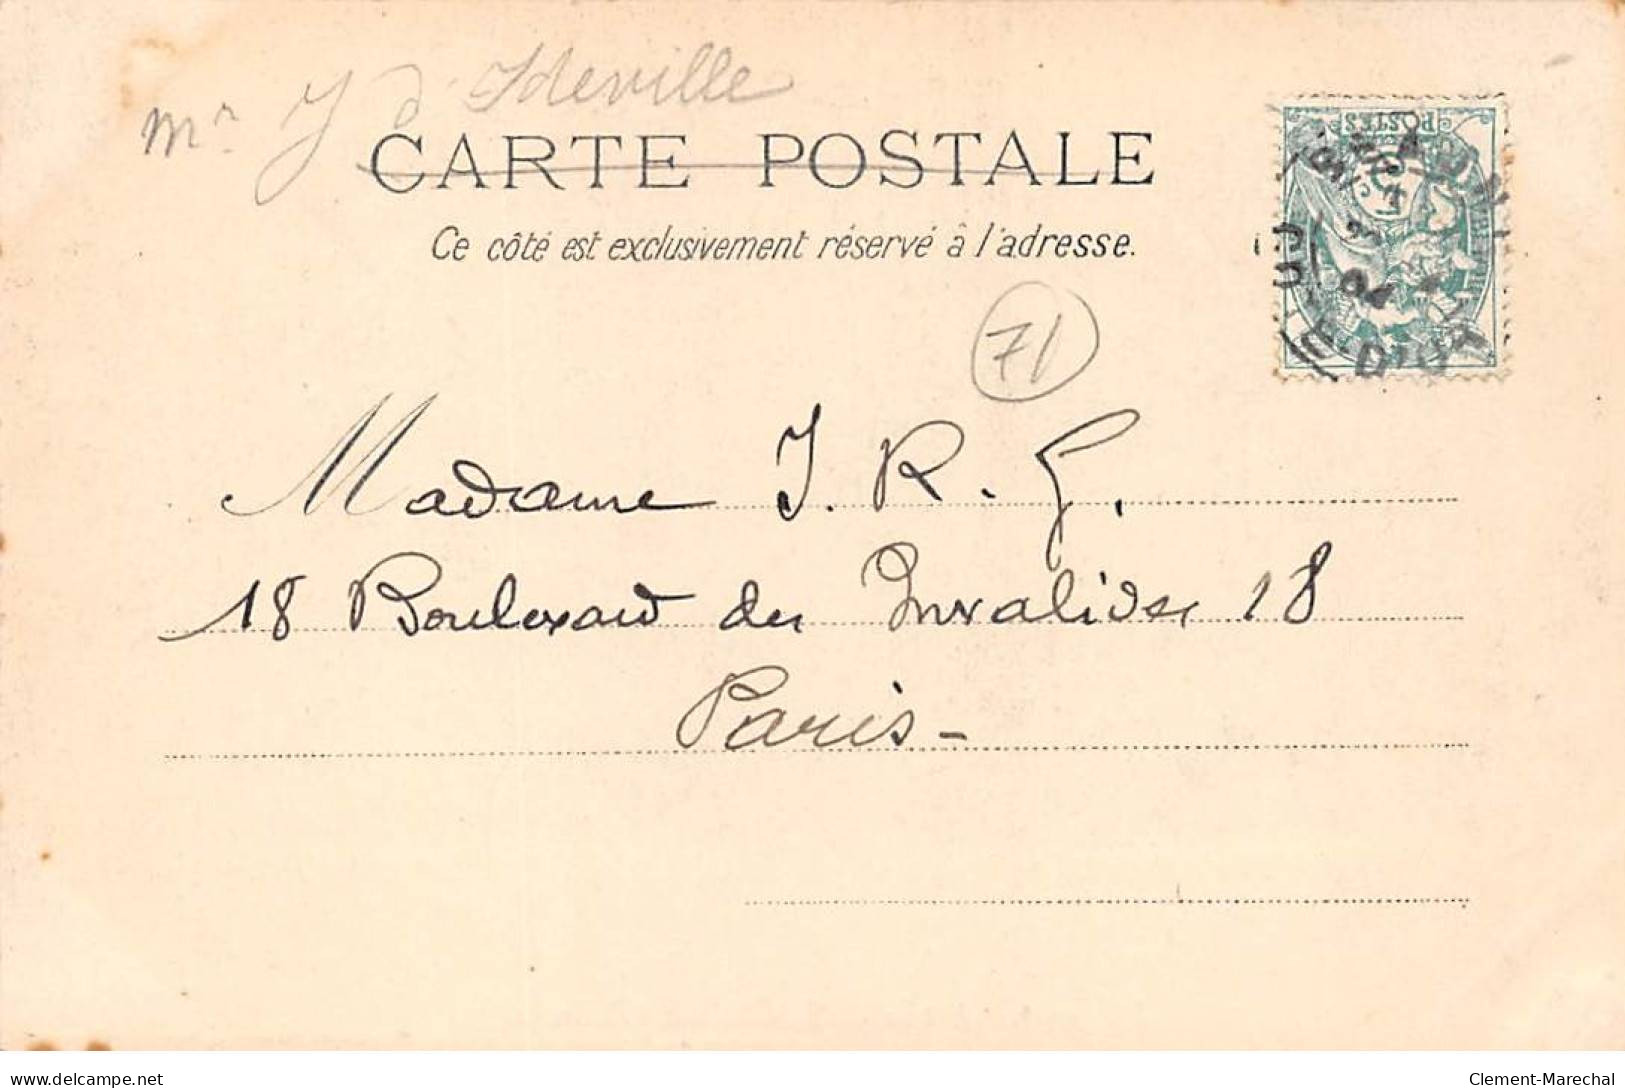 Mr J d'Ideville
CARTE POSTALE
Ce côté est exclusivement réservé à l'adresse.
POSTES
71
Madame J. R. G.
18 Boulevard des Invalides 18
Paris -
delcampe.net
Clement-Marechal